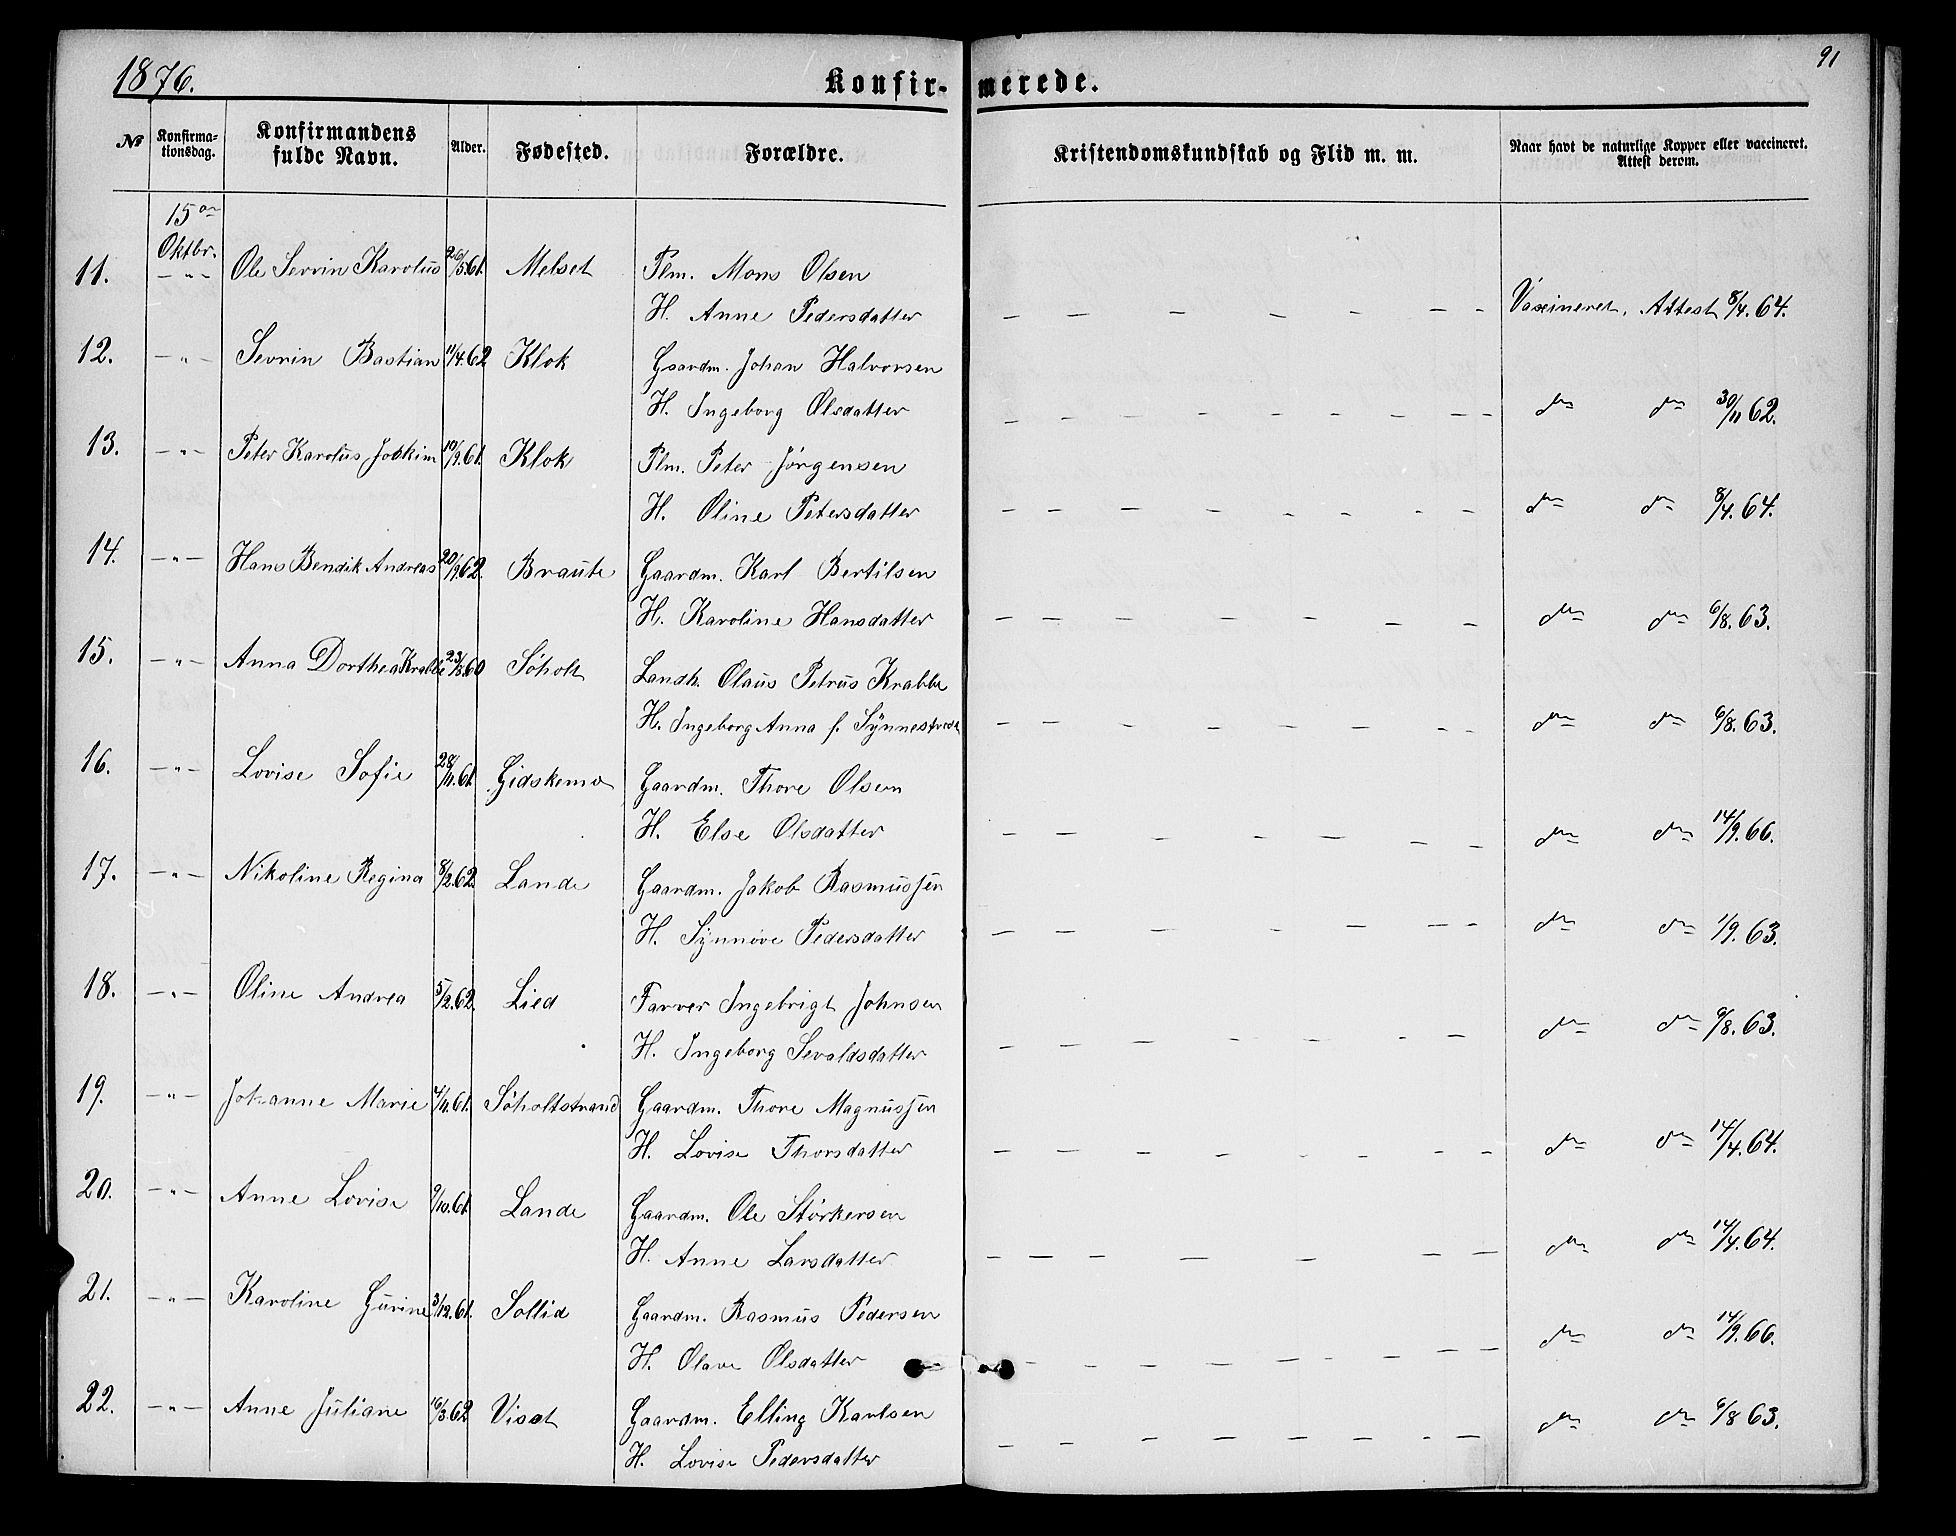 91
1876. Konfir- merede.
№ Konfirma-tionsdag. Konfirmandens fulde Navn. Alder. Fødested. Forældre. Kristendomskundskab og Flid m. m. Naar havt de naturlige Kopper eller vaccineret. Attest derom.
15de Oktbr.
11. — " — Ole Sevrin Karolus 26/5.61. Melset Plm. Mons Olsen
H. Anne Pedersdatter — — — — — — — Vaxineret, Attest 8/4.64.
12. — " — Sevrin Bastian 11/4.62 Klok Gaardm. Johan Halvorsen
H. Ingeborg Olsdatter — — — — — — — — do do 30/11 62.
13. — " — Peter Karolus Joakim 10/9.61. Klok Plm. Peter Jörgensen
H. Oline Petersdatter — — — — — — — — do do 8/4.64.
14. — " — Hans Bendik Andreas 20/9.62. Braute Gaardm. Karl Bertilsen
H. Karoline Hansdatter — — — — — — — do do 6/8.63.
15. — " — Anna Dorthea Krabbe 23/8.60 Söholt Landh. Olaus Petrus Krabbe
H. Ingeborg Anna f. Synnestvedt — — — — — — — do do 6/8.63.
16. — " — Lovise Sofie 28/11.61. Gidskemo Gaardm. Thore Olsen
H. Else Olsdatter — — — — — — — do do 14/9.66.
17. — " — Nikoline Regina 8/2.62. Lande Gaardm. Jakob Rasmussen
H. Synnöve Pedersdatter — — — — — — — do do 1/9.63.
18. — " — Oline Andrea 5/2.62. Lied Farver Ingebrigt Johnsen
H. Ingeborg Sevaldsdatter — — — — — — — do do 6/8.63.
19. — " — Johanne Marie 4/11.61. Söholtstrand Gaardm. Thore Magnussen
H. Lovise Thorsdatter — — — — — — — do do 14/4.64.
20. — " — Anne Lovise 9/10.61. Lande Gaardm. Ole Störkersen
H. Anne Larsdatter — — — — — — — do do 14/4.64.
21. — " — Karoline Gurine 3/12.61. Sollid Gaardm. Rasmus Pedersen
H. Olave Olsdatter — — — — — — — do do 14/9.66.
22. — " — Anne Juliane 16/3.62 Viset Gaardm. Elling Karlsen
H. Lovise Pedersdatter — — — — — — — do do 6/8 63.